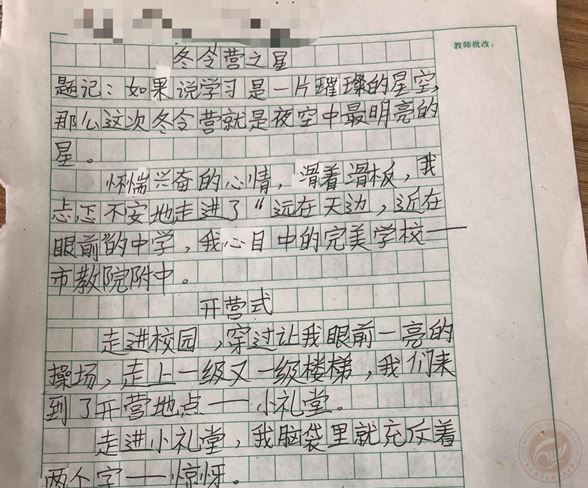 冬令营之星
教师批改：
题记：如果说学习是一片璀璨的星空，
那么这次冬令营就是夜空中最明亮的
星。
怀揣兴奋的心情，滑着滑板，我
忐忑不安地走进了“远在天边，近在
眼前”的中学，我心目中的完美学校——
市教院附中。
开营式
走进校园，穿过让我眼前一亮的
操场，走上一级又一级楼梯，我们来
到了开营地点——小礼堂。
走进小礼堂，我脑袋里就充斥着
两个字——惊讶。